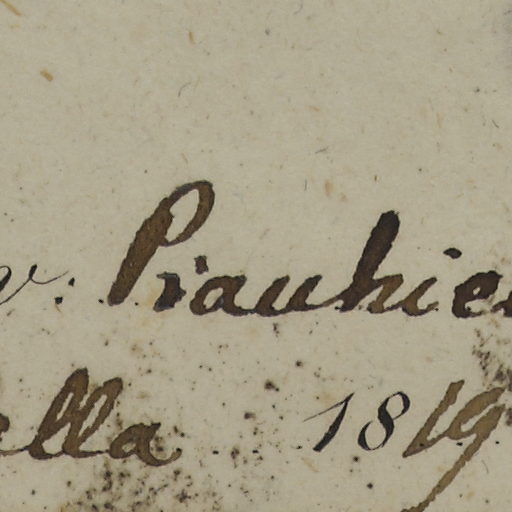 v. Piauhie
ella 1819.